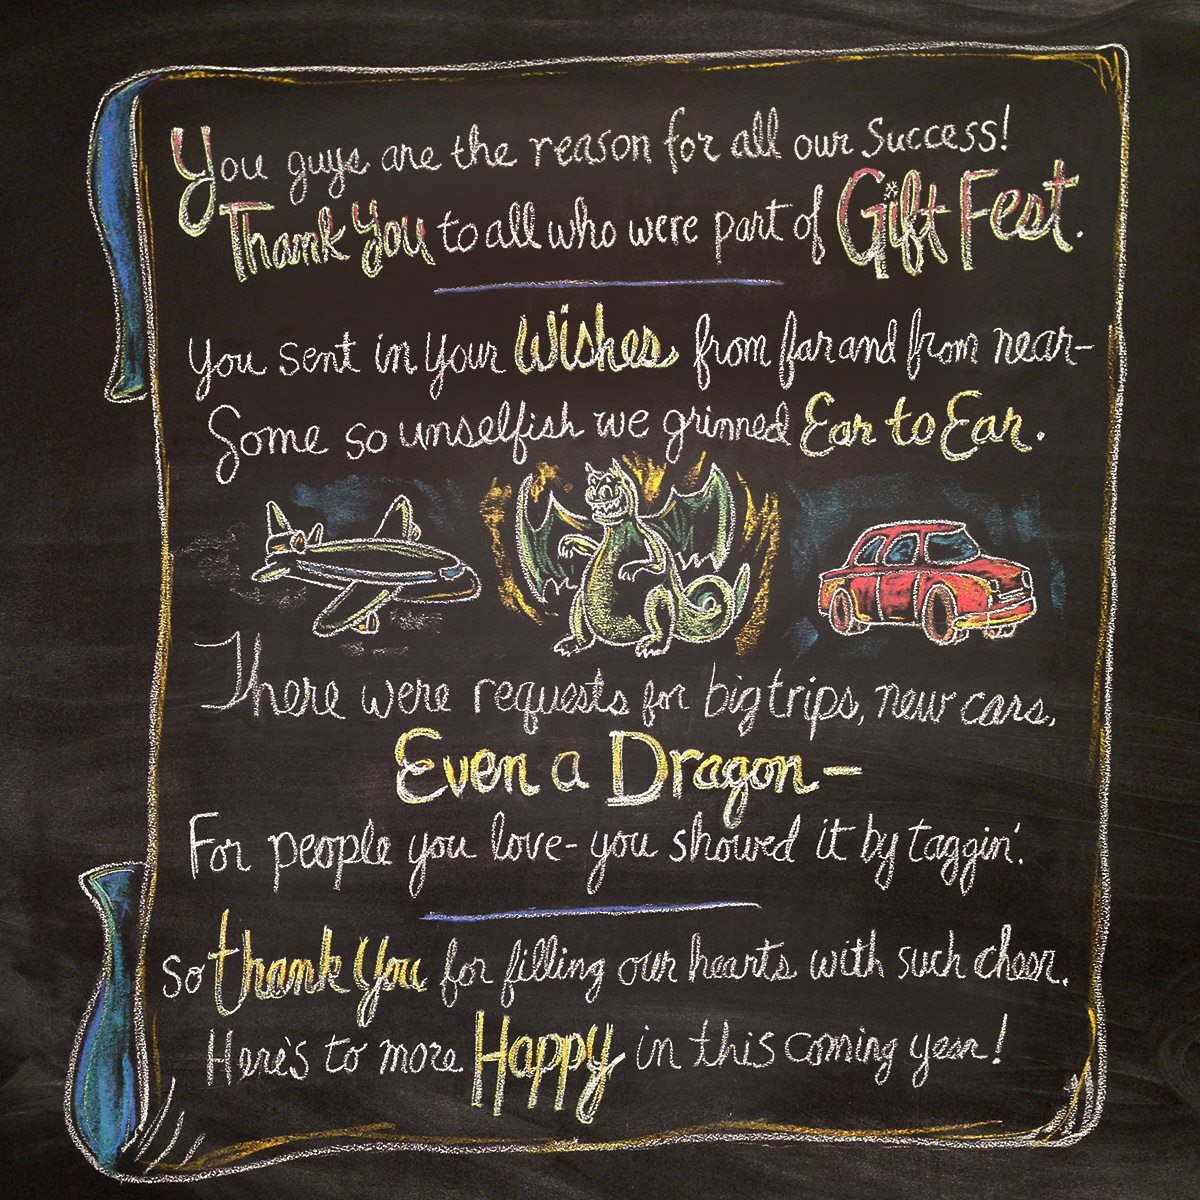 You guys are the reason for all our success!
Thank You to all who were part of Gift Fest.
You sent in your Wishes from far and from near-
Some so unselfish we grinned Ear to Ear.
There were requests for big trips, new cars,
Even a Dragon-
For people you love- you showed it by taggin'.
So thank You for filling our hearts with such cheer.
Here's to more Happy in this coming year!